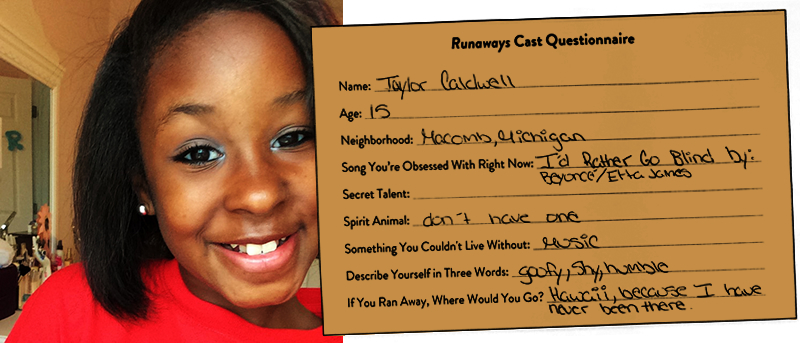 Runaways Cast Questionnaire
Name: Taylor Caldwell
Age: 15
Neighborhood: Macomb, Michigan
Song You're Obsessed With Right Now: I'd Rather Go Blind by:
Beyoncé/Etta James
Secret Talent:
Spirit Animal: don't have one
Something You Couldn't Live Without: Music
Describe Yourself in Three Words: goofy, shy, humble
If You Ran Away, Where Would You Go? Hawaii, because I have
never been there.
R